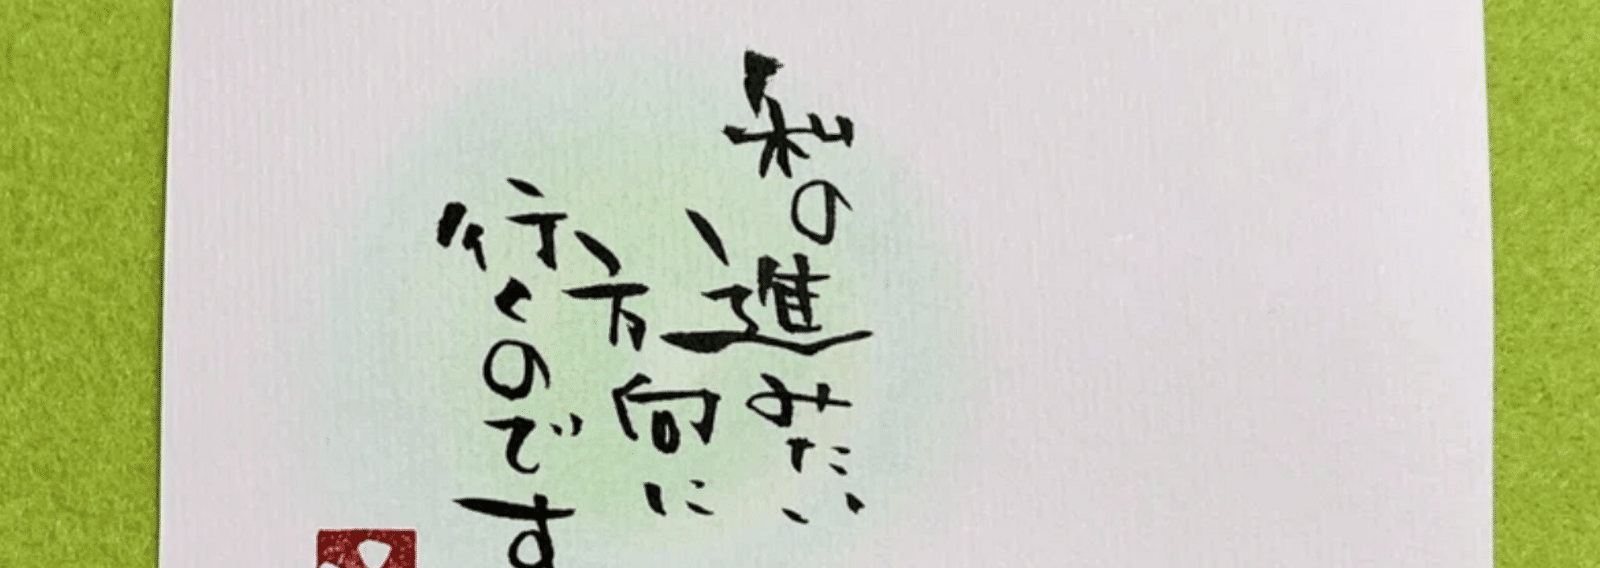 私の進みたい
方向に
行くのです